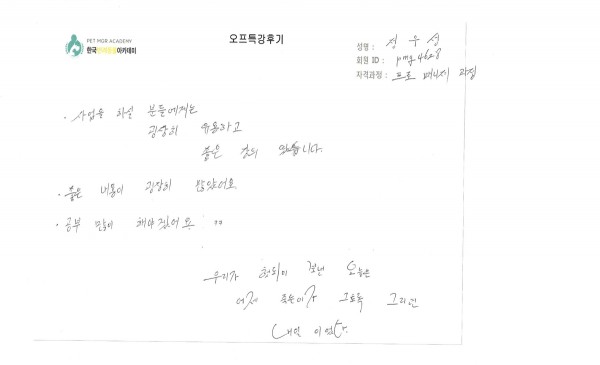 PET MGR ACADEMY
한국반려동물아카데미
오프특강후기
성명 : 성우성
회원 ID : pmg4628
자격과정 : 프로 매니저 과정
· 사업을 하실 분들에게는
굉장히 유용하고
좋은 강의 였습니다.
· 좋은 내용이 굉장히 많았어요
· 공부 많이 해야겠어요 ^^
우리가 헛되이 보낸 오늘은
어제 죽은이가 그토록 그리던
내일 이었다.